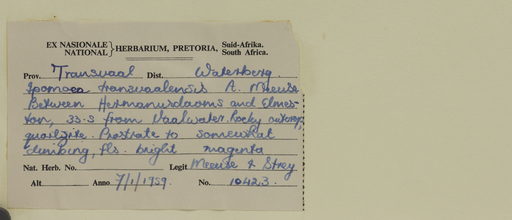 EX NASIONALE
NATIONAL } HERBARIUM, PRETORIA, Suid-Afrika.
South Africa.
Prov. Transvaal Dist. Waterberg.
Ipomoea transvaalensis A. Meeuse
Between Hermanusdoorns and Elmes-
ton, 33·3 from Vaalwater. Rocky outcrop,
quartzite. Prostrate to somewhat
climbing, fls. bright magenta
Nat. Herb. No. Legit Meeuse & Strey
Alt. Anno 7/1/1959. No. 10423.